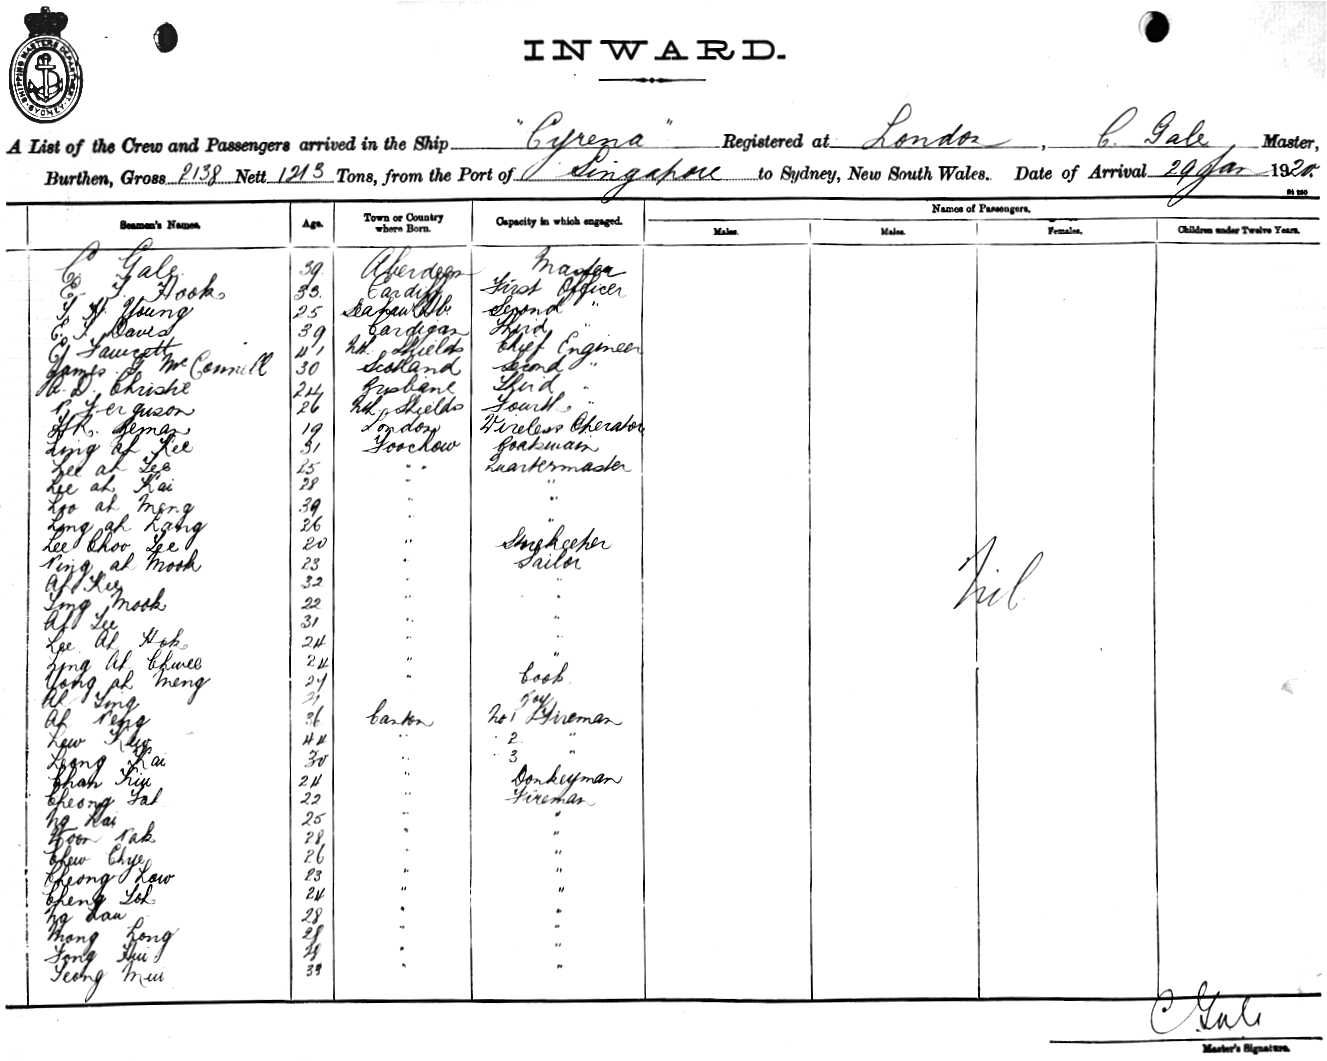 SHIPPING MASTERS DEPARTMENT SYDNEY
INWARD.
A List of the Crew and Passengers arrived in the Ship "Cyrena" Registered at London, C. Gale Master,
Burthen, Gross 2138 Nett 1213 Tons, from the Port of Singapore to Sydney, New South Wales. Date of Arrival 29 Jan 1920.
Seamen's Names. Age. Town or Country where Born. Capacity in which engaged. Names of Passengers.
Males. Males. Females. Children under Twelve Years.
C. Gale 39 Aberdeen Master
E. T. Hook 33 Cardiff First Officer
T. H. Young 25 Seaham Second "
E. T. Davis 39 Cardigan Third "
Fawcett 41 Nth. Shields Chief Engineer
James McConnill 30 Scotland Second "
A. D. Christie 24 Brisbane Third "
Ferguson 26 Nth. Shields Fourth "
19 London Wireless Operator
Ling ah Kee 31 Foochow Boatswain
Lee ah Lee 25 " " Quartermaster
Lee ah Kai 28 " "
Loo ah Meng 39 " "
Ling ah Kang 26 " "
Lee Choo Lee 20 " Storekeeper
Ning ah Mook 23 " Sailor
Ah Kee 32 " "
Ting Mook 22 " "
Ah Lee 31 " "
Lee Ah Hok 24 " "
Ling Ah Chwee 24 " "
Yong ah Meng 27 " Cook
Ah Ting Boy
Ah Peng 36 Canton No 1 Fireman
Lew Kew 44 " " 2 "
Leong Kai 30 " " 3 "
Chan Kiu 24 " Donkeyman
Cheong Fat 22 " Fireman
Ng Kai 25 " "
Woon Pak 28 " "
Chew Chye 26 " "
Cheong Low 23 " "
Cheng Loh 24 " "
Ng Lau 28 " "
Mong Long 28 " "
Fong " "
Leong Mui 33 " "
Nil
C Gale
Master's Signature.